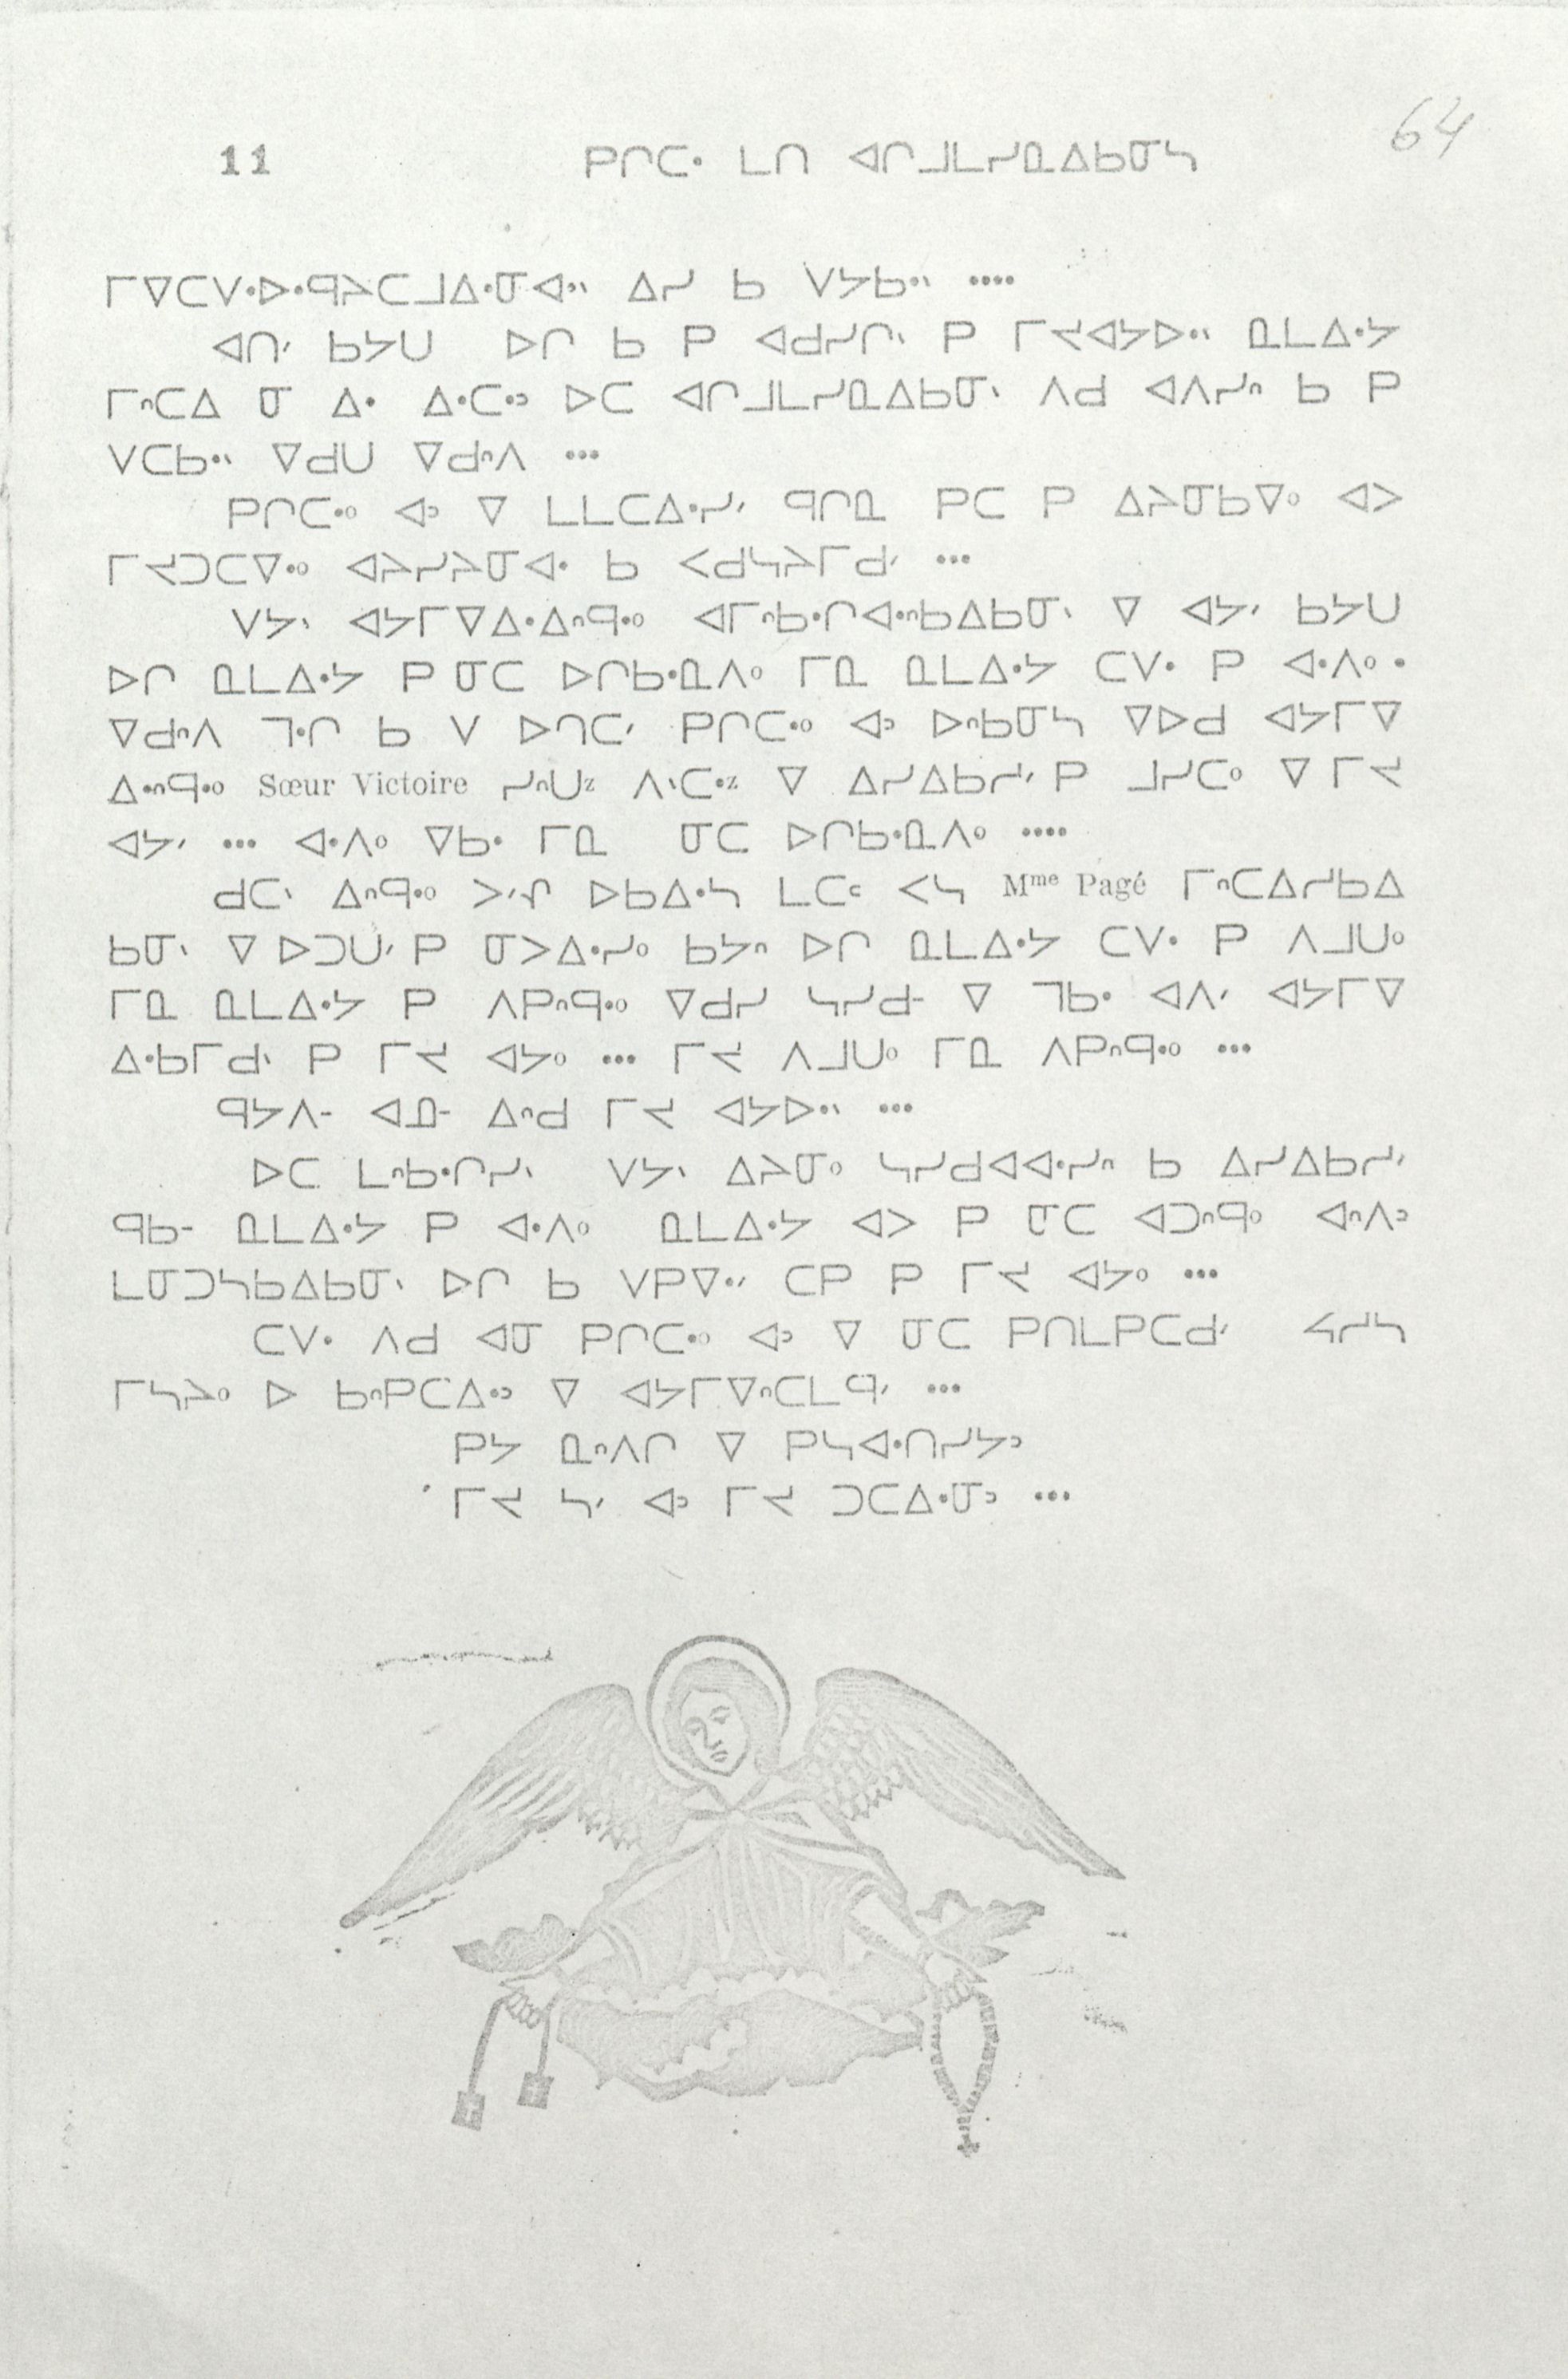 64
11 ᑭᒋᑕᐧ ᒪᑎ ᐊᒋᒧᒪᓯᓇᐃᑲᓂᓴ
ᒥᐁᑕᐯᐧᐅᐧᑫᔨᑕᒧᐃᐧᓂᐊᐧᐠ ᐃᓯ ᑲ ᐯᔭᑲᐧᐠ ····
ᐊᑎᐟ ᑲᔭᑌ ᐅᒋ ᑲ ᑭ ᐊᑯᓯᒋᐠ ᑭ ᒥᔪᐊᔭᐅᐧᐠ ᓇᒪᐃᐧᔭ
ᒥᐢᑕᐃ ᓂ ᐃᐧ ᐃᐧᑕᐧᐣ ᐅᑕ ᐊᒋᒧᒪᓯᓇᐃᑲᓂᐠ ᐱᑯ ᐊᐱᓯᐢ ᑲ ᑭ
ᐯᑕᑲᐧᐠ ᐁᑯᑌ ᐁᑯᐢᐱ ···
ᑭᒋᑕᐧᐤ ᐋᐣ ᐁ ᒪᒪᑕᐃᐧᓯᐟ ᑫᒋᓇ ᑭᑕ ᑭ ᐃᔨᓂᑲᐁᐤ ᐊᐳ
ᒥᔪᑐᑕᐁᐧᐤ ᐊᔨᓯᔨᓂᐊᐧ ᑲ ᐸᑯᓴᔨᒥᑯᐟ ···
ᐯᔭᐠ ᐊᔭᒥᐁᐃᐧᐃᐢᑫᐧᐤ ᐊᒥᐢᑲᐧᒋᐊᐧᐢᑲᐃᑲᓂᐠ ᐁ ᐊᔭᐟ ᑲᔭᑌ
ᐅᒋ ᓇᒪᐃᐧᔭ ᑭ ᓂᑕ ᐅᒋᑲᐧᓇᐱᐤ ᒥᓇ ᓇᒪᐃᐧᔭ ᑕᐯᐧ ᑭ ᐊᐧᐱᐤ ᐧ
ᐁᑯᐢᐱ ᒣᐧᒋ ᑲ ᐯ ᐅᑎᑕᐟ ᑭᒋᑕᐧᐤ ᐋᐣ ᐅᐢᑲᓂᓴ ᐁᐅᑯ ᐊᔭᒥᐁ
ᐃᐧᐢᑫᐧᐤ Sœur Victoire ᓯᐢᑌᙆ ᐱᐠᑕᐧᙆ ᐁ ᐃᓯᐃᑲᓱᐟ ᑭ ᒧᓯᑕᐤ ᐁ ᒥᔪ
ᐊᔭᐟ ··· ᐊᐧᐱᐤ ᐁᑲᐧ ᒥᓇ ᓂᑕ ᐅᒋᑲᐧᓇᐱᐤ ····
ᑯᑕᐠ ᐃᐢᑫᐧᐤ ᐅᑲᐃᐧᓴ ᒪᑕᑦ ᐸᓴ Mᵐᵉ Pagé ᒥᐢᑕᐃᓱᑲᐃ
ᑲᓂᐠ ᐁ ᐅᑐᑌᐟ ᑭ ᓂᐳᐃᐧᓯᐤ ᑲᔭᐢ ᐅᒋ ᓇᒪᐃᐧᔭ ᑕᐯᐧ ᑭ ᐱᒧᑌᐤ
ᒥᓇ ᓇᒪᐃᐧᔭ ᑭ ᐱᑭᐢᑫᐧᐤ ᐁᑯᓯ ᓴᓯᑯᐨ ᐁ ᒣᑲᐧ ᐊᐱᐟ ᐊᔭᒥᐁ
ᐃᐧᑲᒥᑯᐠ ᑭ ᒥᔪ ᐊᔭᐤ ··· ᒥᔪ ᐱᒧᑌᐤ ᒥᓇ ᐱᑭᐢᑫᐧᐤ ···
ᑫᔭᐱᐨ ᐊᓄᐨ ᐃᐢᑯ ᒥᔪ ᐊᔭᐅᐧᐠ ···
ᐅᑕ ᒪᐢᑲᐧᒋᓯᐠ ᐯᔭᐠ ᐃᔨᓂᐤ ᓴᓯᑯᐊᐊᐧᓯᐢ ᑲ ᐃᓯᐃᑲᓱᐟ
ᑫᑲᐨ ᓇᒪᐃᐧᔭ ᑭ ᐊᐧᐱᐤ ᓇᒪᐃᐧᔭ ᐊᐳ ᑭ ᓂᑕ ᐊᑐᐢᑫᐤ ᐊᐢᐱᐣ
ᒪᓂᑐᓴᑲᐃᑲᓂᐠ ᐅᒋ ᑲ ᐯᑭᐁᐧᐟ ᑕᑭ ᑭ ᒥᔪ ᐊᔭᐤ ···
ᑕᐯᐧ ᐱᑯ ᐊᓂ ᑭᒋᑕᐧᐤ ᐋᐣ ᐁ ᓂᑕ ᑭᑎᒪᑭᑕᑯᐟ ᓵᓱᓴ
ᒥᓴᔨᐤ ᐅ ᑲᐢᑭᑕᐃᐧᐣ ᐁ ᐊᔭᒥᐁᐢᑕᒪᑫᐟ ···
ᑭᔭ ᓇᐢᐱᒋ ᐁ ᑭᓴᐊᐧᑎᓯᔭᐣ
ᒥᔪ ᓴᐟ ᐋᐣ ᒥᔪ ᑐᑕᐃᐧᓂᐣ ···